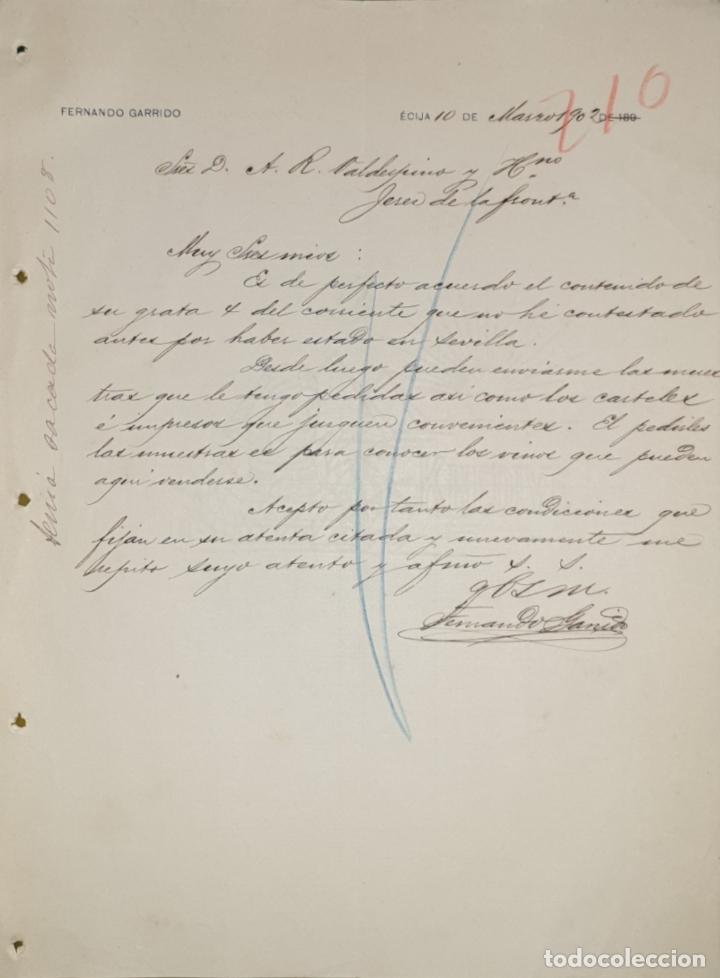 710
FERNANDO GARRIDO
ÉCIJA 10 DE Marzo 1902 DE 189
Sres D. A. R. Valdespino y Hno
Jerez de la Front.a
Muy Sres mios:
Es de perfecto acuerdo el contenido de
su grata 4 del corriente que no hé contestado
antes por haber estado en Sevilla.
Desde luego pueden enviarme las mues
tras que le tengo pedidas asi como los carteles
é impresos que juzguen convenientes. El pedirles
las muestras es para conocer los vinos que pueden
aqui venderse.
Acepto por tanto las condiciones que
fijan en su atenta citada y nuevamente me
repito suyo atento y afmo S. S.
q b s m.
Fernando Garrido
1108.
todocoleccion